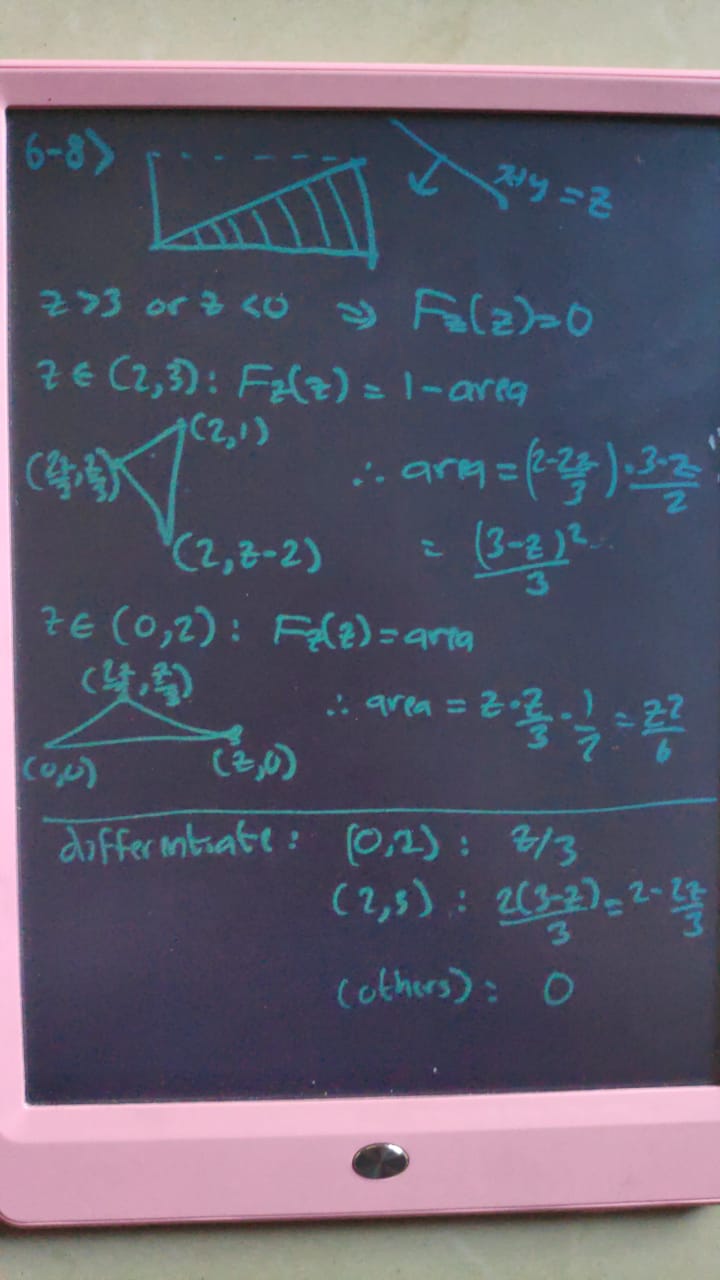 6-8>
x+y=z
z>3 or z<0 ⇒ Fz(z)=0
z∈(2,3): Fz(z)=1-area
(2,1)
(2z/3, z/3)
∴ area=(2-2z/3)·3-z/2
(2,z-2)
= (3-z)²/3
z∈(0,2): Fz(z)=area
(2z/3, z/3)
∴ area = z·z/3·1/2 = z²/6
(0,0)
(z,0)
differentiate: (0,2): z/3
(2,3): 2(3-z)/3 = 2-2z/3
(others): 0